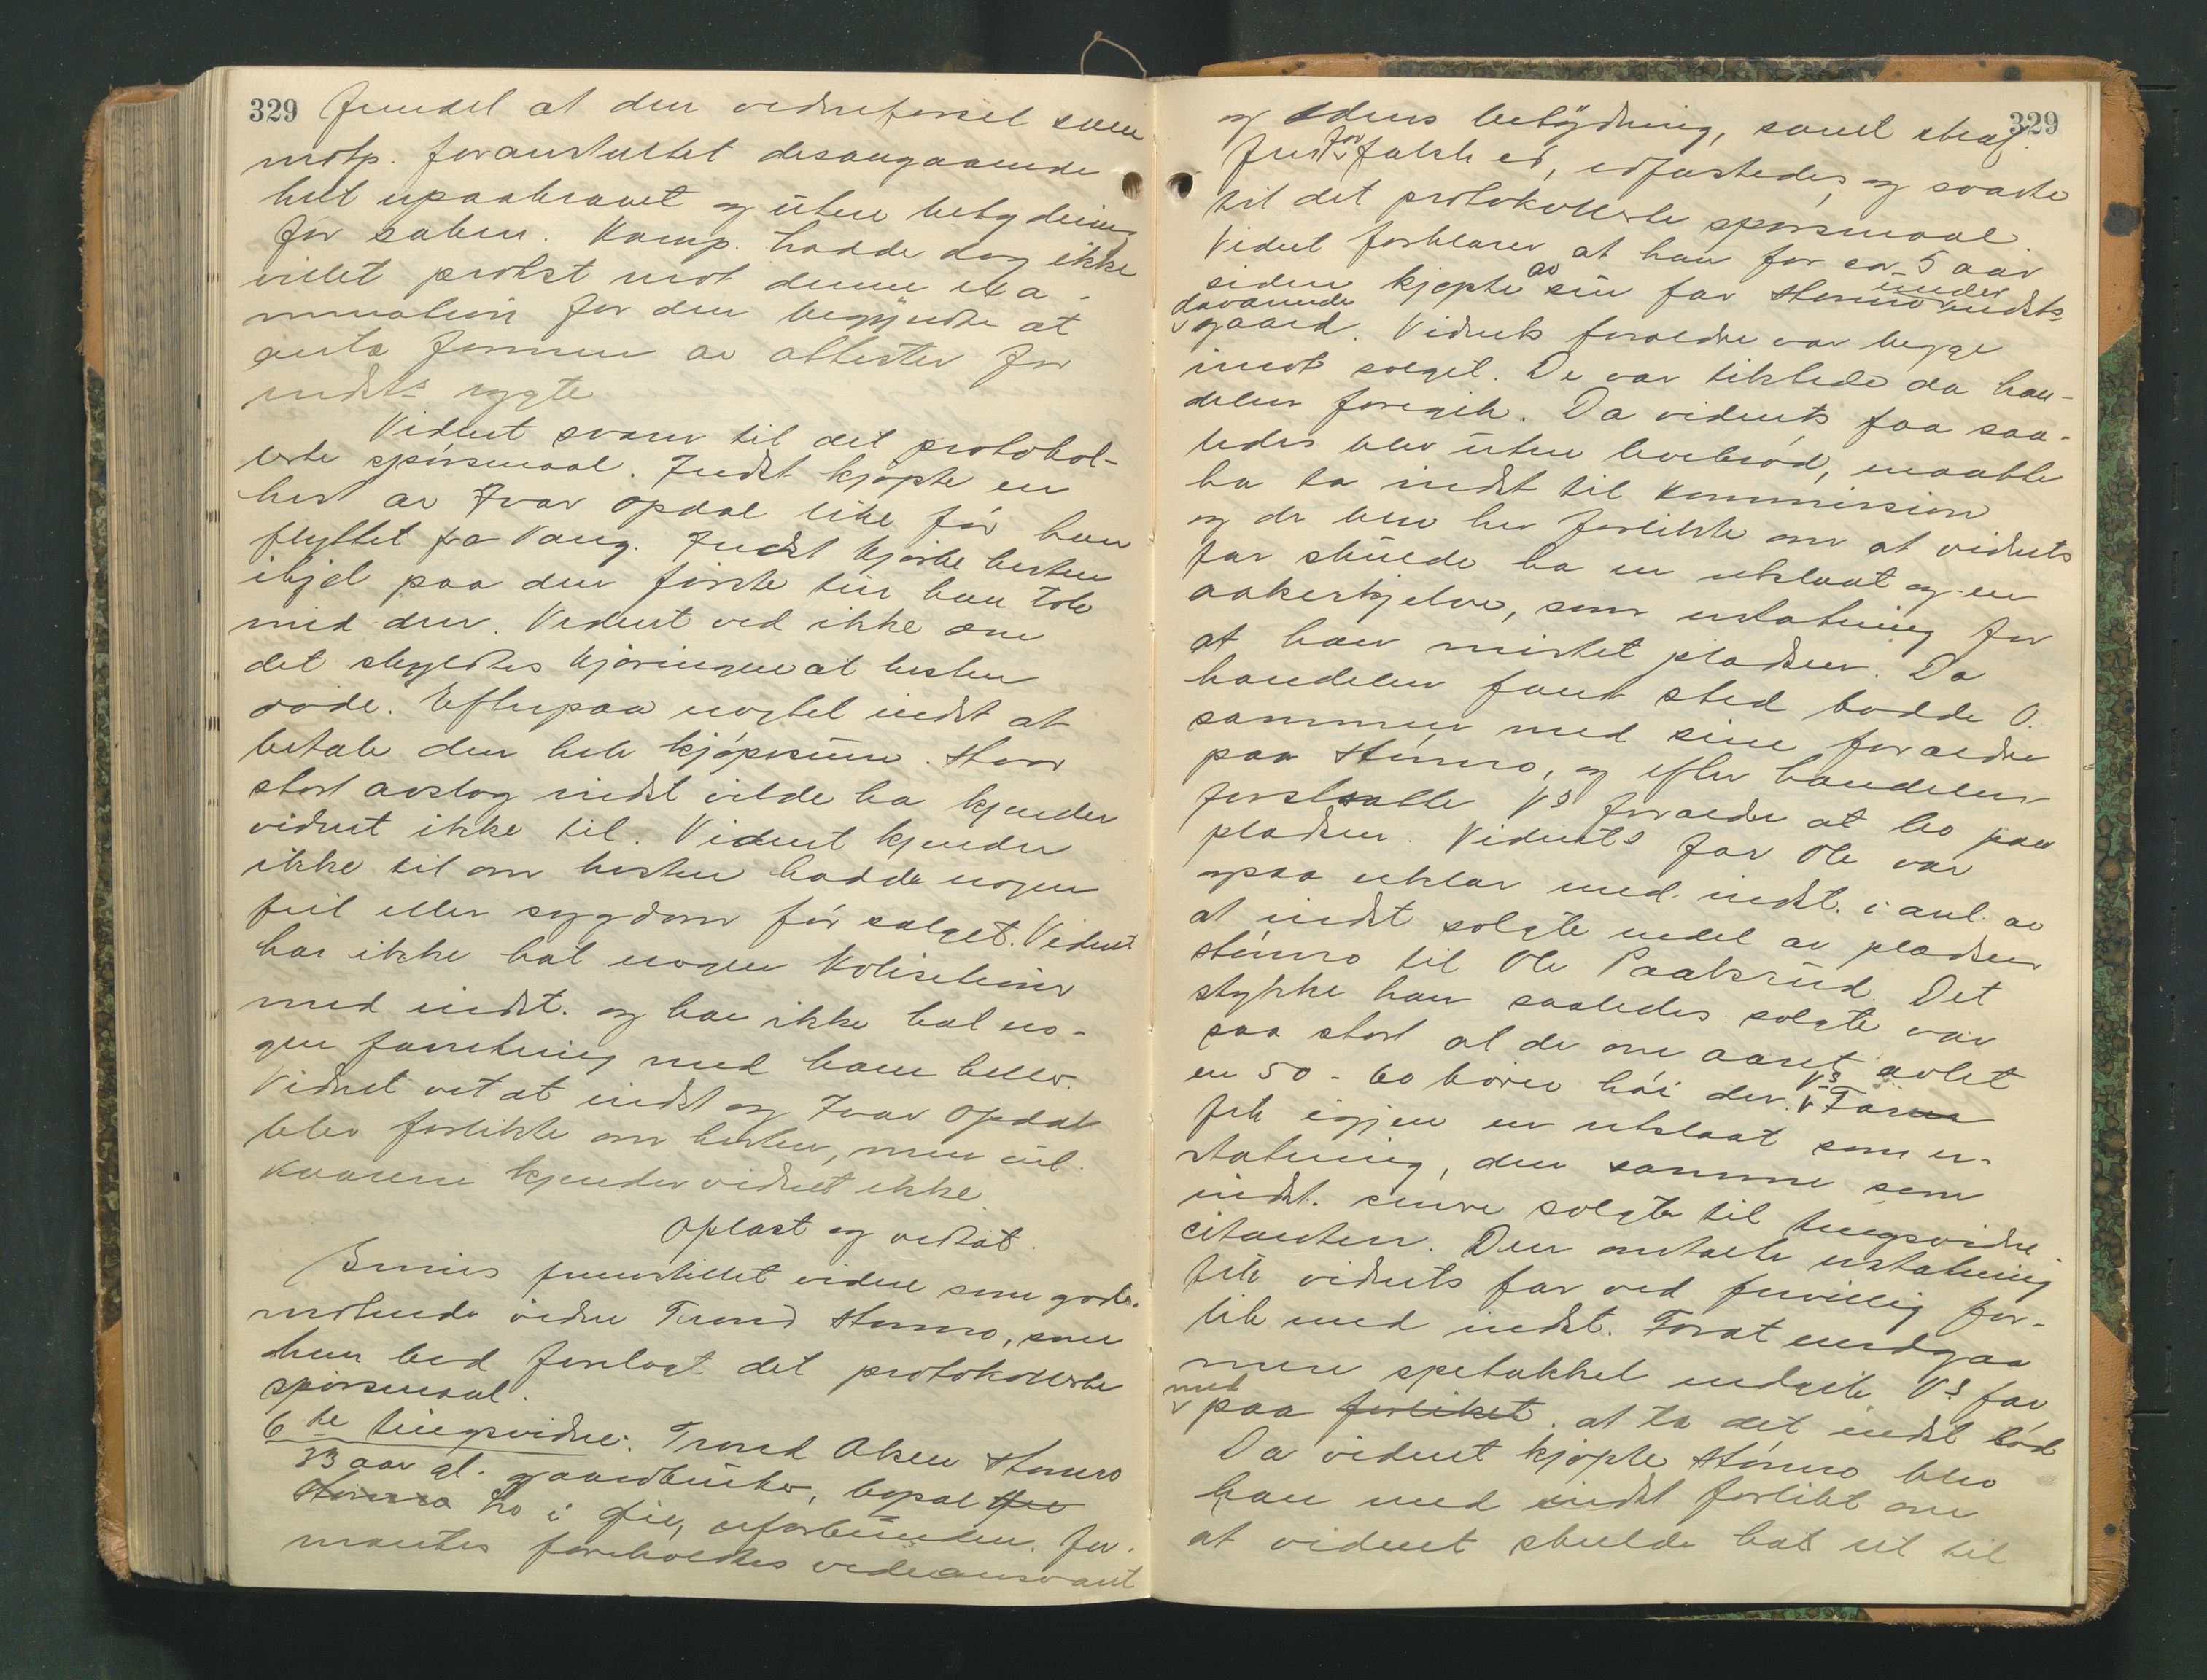 329 fundet at den vidneførsel som
motp. foranstaltet desangaaende
helt upaakrævet og uten betydning
for saken. Komp. hadde dog ikke
villet protst mot denne exa-
mination før den begyndte at
anta formen av attester for
indst.s rygte.
Vidnet svarer til det protokol-
lerte spørsmaal. Indst kjøpte en
hest av Ivar Opdal like før han
flyttet fra Vang. Indst kjørte hesten
ihjel paa den første tur han tok
med den. Vidnet ved ikke om
det skyldtes kjøringen at hesten
døde. Efterpaa negtet indst at
betale den hele kjøpesum. Hvor
stort avslag indst vilde ha kjender
vidnet ikke til. Vidnet kjender
ikke til om hesten hadde nogen
feil eller sygdom før salget. Vidnet
har ikke hat nogen kolisioner
med indst. og har ikke hat no-
gen forretning med ham heller.
Vidnet vet at indst og Ivar Opdal
blev forlikte om hesten, men vil-
kaarene kjender vidnet ikke.
Oplæst og vedtat.
fremstillet videre som godv.
møtende vidne Trond Stomro, som
han bad forelagt det protokollerte
spørsmaal.
6te tingsvidne: Trond Olsen Stomro
33 aar gl. gaardbruker, bopæl
Stomro Ro i Øie, uforbunden. For-
mantes foreholdtes vidneansvaret
329
og edens betydning, samt straf-
for falsk ed, edfæstedes og svarte
til det protokollerte spørsmaal.
Vidnet forklarer at han for ca. 5 aar
siden kjøpte av sin far Stomro under indsts
davarende gaard. Vidnets foreldre var begge
imot salget. De var tilstede da han-
delen foregik. Da vidnets faa saa-
ledes blev uten levebrød, maatte
ha ta indst til kommission
og de blev her forlikte om at vidnets
far skulde ha en utslaat og en
aakerkjelve, som erstatning for
at han mistet pladsen. Da
handelen fant sted bodde O.
sammen med sine foreldre
paa Stomro, og efter handelen
fortsatte Vs foreldre at bo paa
pladsen. Vidnets far Ole var
ogsaa uklar med indst. i anl. av
at indst solgte endel av pladsen
Stomro til Ole Paalsrud. Det
stykke han saaledes solgte var
saa stort at de om aaret avlet
en 50 - 60 bører høi der. Vs Far
fik igjen en utslaat som er-
statning, den samme som
indst. senere solgte til tingsvidne
citanten. Den omtalte erstatning
fik vidnets far ved frivillig for-
lik med indst. Forat undgaa
mere spetakkel indgik Vs. far
med paa forliket. at ta det indst bød
Da vidnet kjøpte Stomro blev
han med indst forlikt om
at vidnet skulde hat ut til